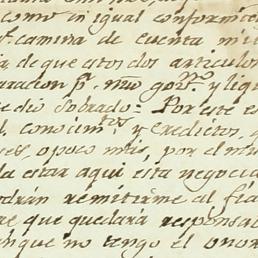 como in igual conformite
camina de cuenta mit
ia de que estos dos articulos
racion pr. mio gov.no y liqu
dio Sobrado = Por este
l, conocim.tos y eredictos,
ses, o poco mas, por el
la estar aqui esta negocia
odrán remitirme al fia
re que quedará responsa
unque no tengo el onor